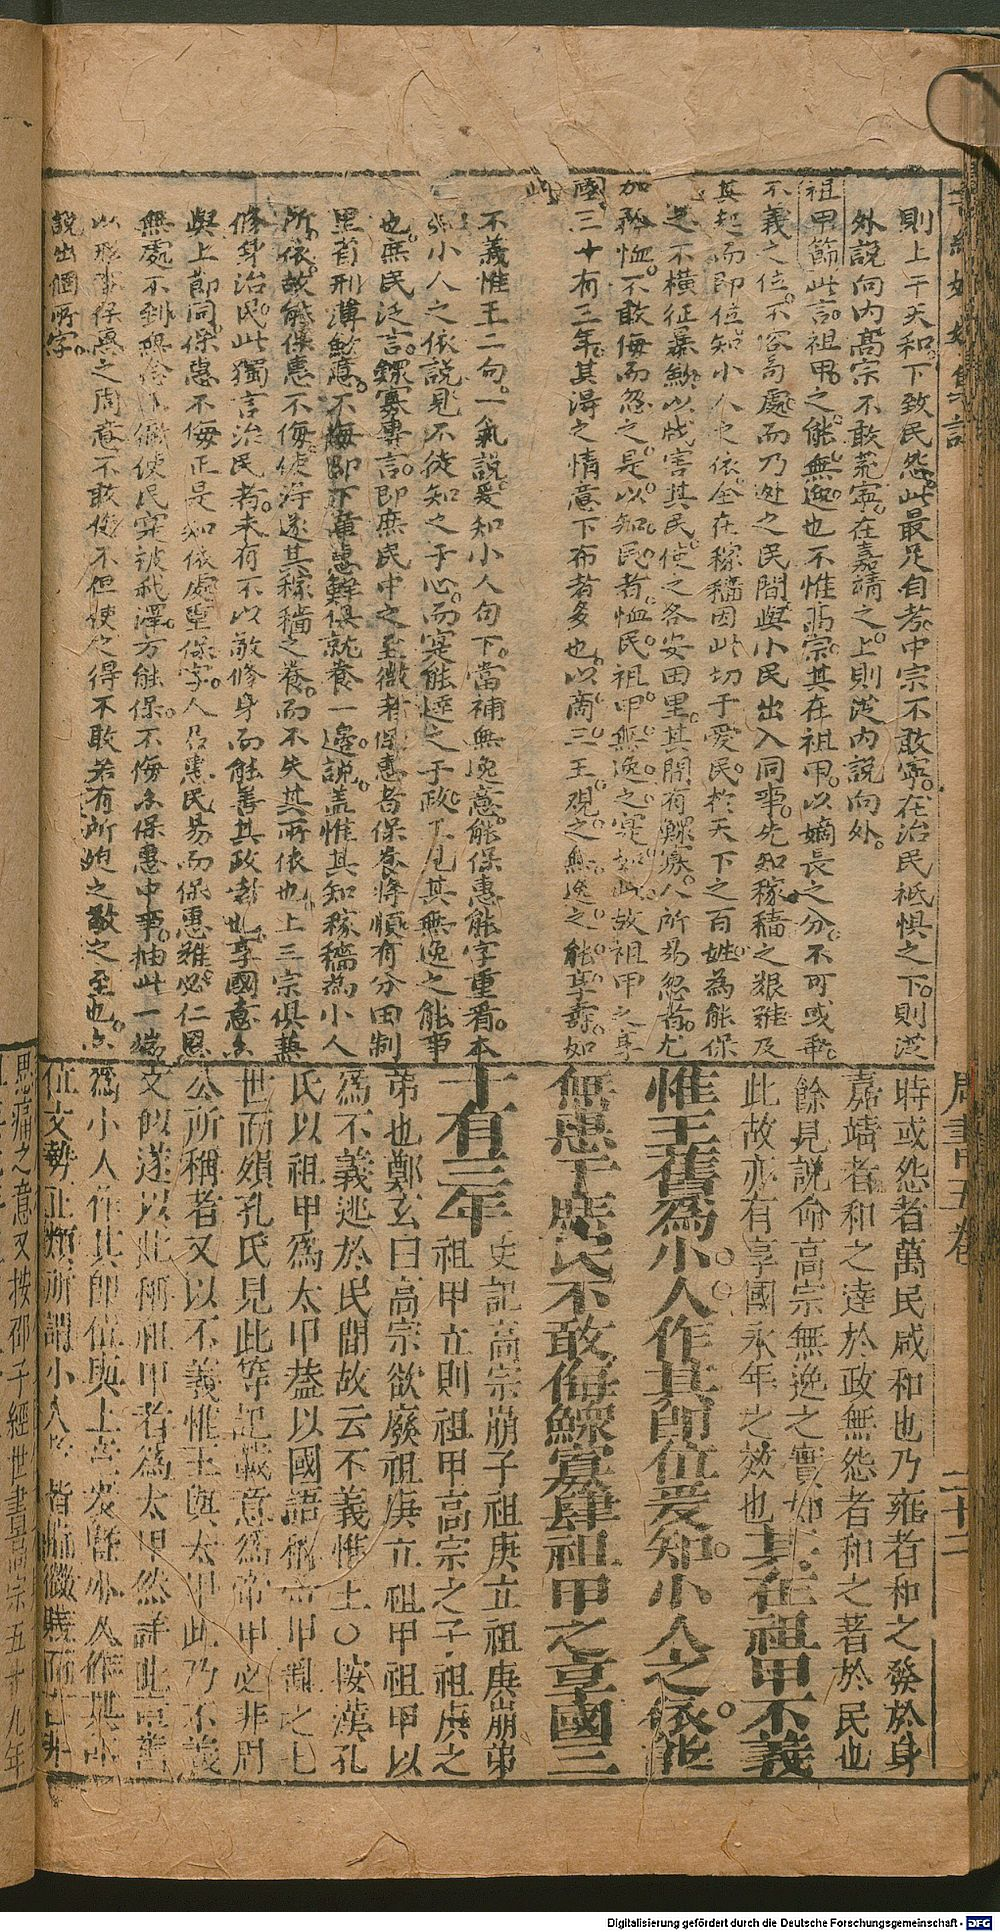 則上干天和下致民怨此最足自考中宗不敢寧在治民祗懼之下則從
外説向内高宗不敢荒寧在嘉靖之上則從内説向外
祖甲節此言祖甲之能無逸也不惟高宗其在祖甲以嫡長之分不可或
不義之位不容苟處而乃處之民間與小民出入同事先知稼穡之艱難及
其起而即位知小人之依全在稼穡因此切于愛民於天下之百姓為能保
之不橫征暴以戕害其民使之各安田里其間有鰥寡人所易忽者尤
加矜恤不敢侮而忽之是以知民者恤民祖甲無逸之實如此故祖甲之享
國三十有三年其淂之情意下布者多也以商三王觀之無逸之能享壽如
此
不義惟王二句一氣説爰知小人句下當補無逸意能保惠能字重看本
小人之依説見不徒知之于心而寔能達之于政見其無逸之能事
也庶民泛言鰥寡專言即庶民中之至微者保惠者保養將順有分田制
里省刑薄歛意不侮即下惠鮮俱就養一邊説蓋惟其知稼穡為小人
所依故能保惠不侮使淂遂其稼穡之養而不失其所依也上三宗俱兼
修身治民此獨言治民者未有不以敬修身而能善其政者也享國意
與上節同保惠不侮正是知依處重保字人君惠民易而保惠難必仁恩
無處不到使民寔被我澤方能保不侮保惠中事抽此一端
以形保惠之周意不敢侮不但使之得不敢若有所之敬之至也
説出個所字
周書 五卷 二十二
時或怨者萬民咸和也乃雍者和之發於身
嘉靖者和之達於政無怨者和之著於民也
餘見説命高宗無逸之實如
此故亦有享國永年之效也其在祖甲不義
惟王舊為小人作其即位爰知小人之依能
保惠于庶民不敢侮鰥寡肆祖甲之享國三
十有三年史記高宗崩子祖庚立祖庚崩弟
祖甲立則祖甲高宗之子祖庚之
弟也鄭玄曰高宗欲廢祖庚立祖甲祖甲以
爲不義逃於民間故云不義惟王○按漢孔
氏以祖甲爲太甲葢以國語稱帝甲亂之七
世而殞孔氏見此等記載意爲帝甲必非周
公所稱者又以不義惟王與太甲此乃不義
文似遂以此稱祖甲者爲太甲然詳此章舊
爲小人作其即位與上章爰曁小人作其即
位文勢正類所謂小人者皆指微賤而言非
思痛之意又按邵子經世書高宗五十九年
Digitalisierung gefördert durch die Deutsche Forschungsgemeinschaft - DFG